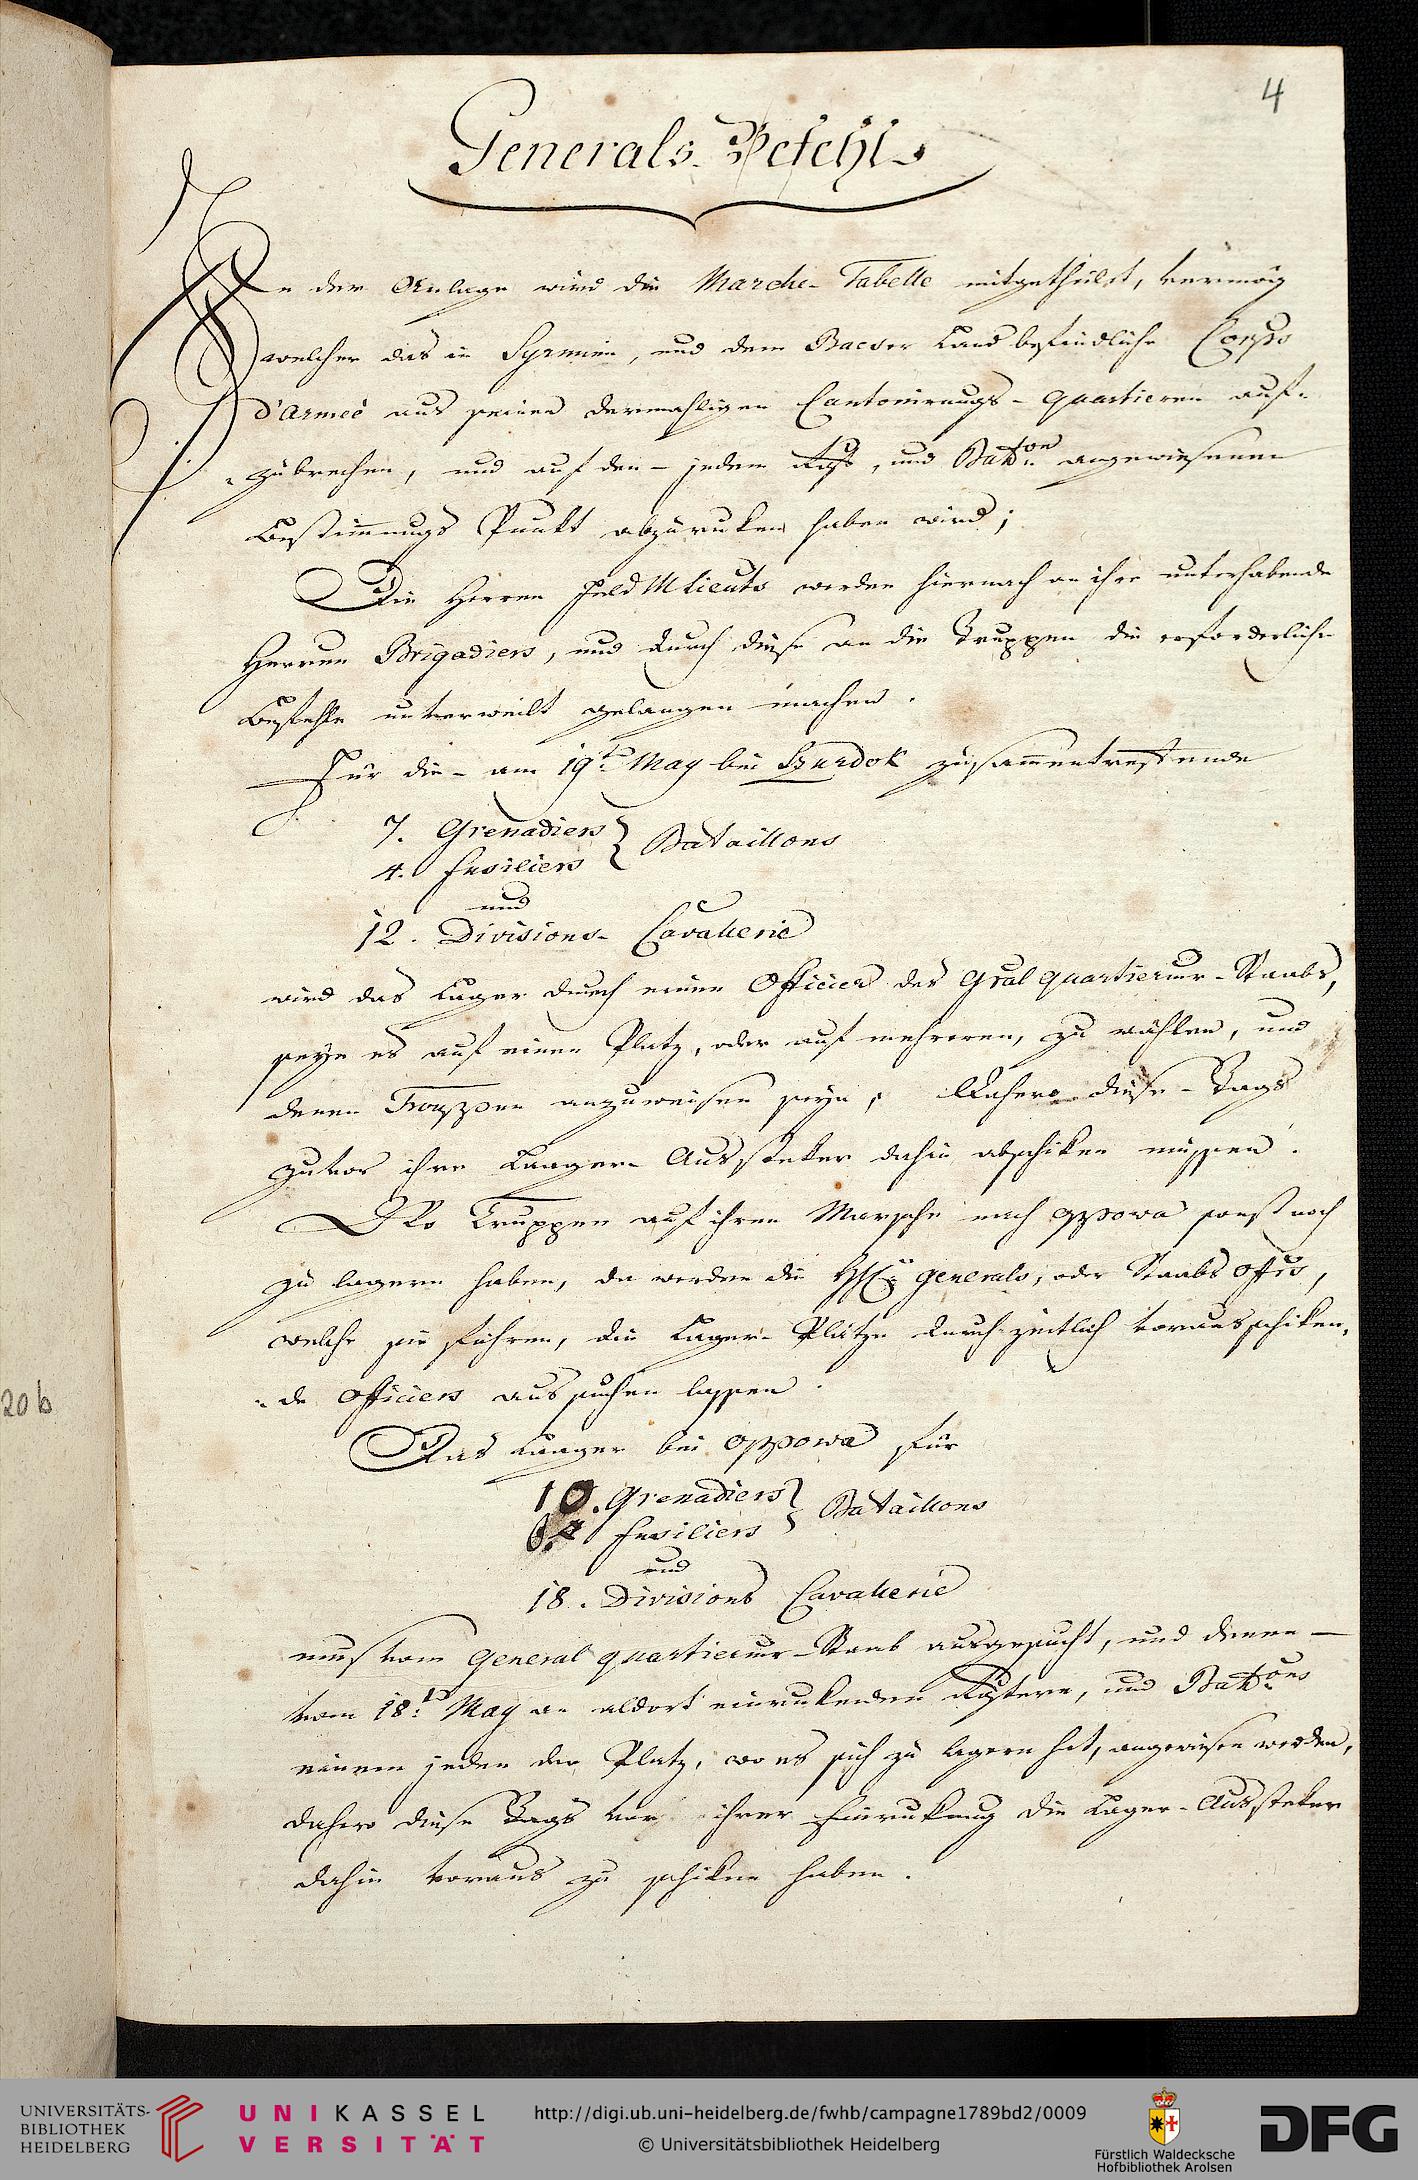 4
Generals-Befehl
In der Anlage wird die Marche-Tabelle mitgetheilet, vermög
welcher das in Syrmien, und dem Bacser Land befindliche Corps
d'Armeé aus seinen dermahligen Cantonirungs-Quartieren auf-
zubrechen, und auf den - jedem Rgt, und Batton angewiesenen
Bestimmungs Punkt abzuruken haben wird;
Die Herren Feld Mlieuts werden hiernach an ihre unterhabende
Herren Brigadiers, und durch diese an die Truppen die erforderliche
Befehle unverweilt gelangen machen.
Für die - am 19ten May bei Szurdok zusammentreffende
7. Grenadiers } Bataillons
4. Fusiliers
und
12. Divisions-Cavallerie
wird das Lager durch einen Officier des Gral Quartiermr-Staabs,
seye es auf einen Platz, oder auf mehreren, zu wählen, und
denen Trouppen anzuweisen seyn; Dahero diese - Tags
zuvor ihre Laager-Aussteker dahin abschiken müssen.
Wo Truppen auf ihren Marsche nach Oppowa sonst noch
zu lagern haben, da werden die HH: Generals, oder Staabs Offrs,
welche sie führen, die Lager-Plätze durch zeitlich vorausschiken-
de Officiers aussuchen lassen.
Das Laager bei Oppowa für
10. Grenadiers } Bataillons
Fusiliers
und
18. Divisions Cavallerie
mus vom General Quartiermr-Staab ausgesucht, und denen -
vom 18ten May an aldort einrukenden Rgtern, und Battons
einem jeden der Platz, wo es sich zu lagern hat, angewiesen werden,
dahero diese Tags vor ihrer Einrukung die Lager-Aussteker
dahin voraus zu schiken haben.
20b
UNIVERSITÄTS-
BIBLIOTHEK
HEIDELBERG
UNIKASSEL
VERSITÄT
http://digi.ub.uni-heidelberg.de/fwhb/campagne1789bd2/0009
© Universitätsbibliothek Heidelberg
Fürstlich Waldecksche
Hofbibliothek Arolsen
DFG